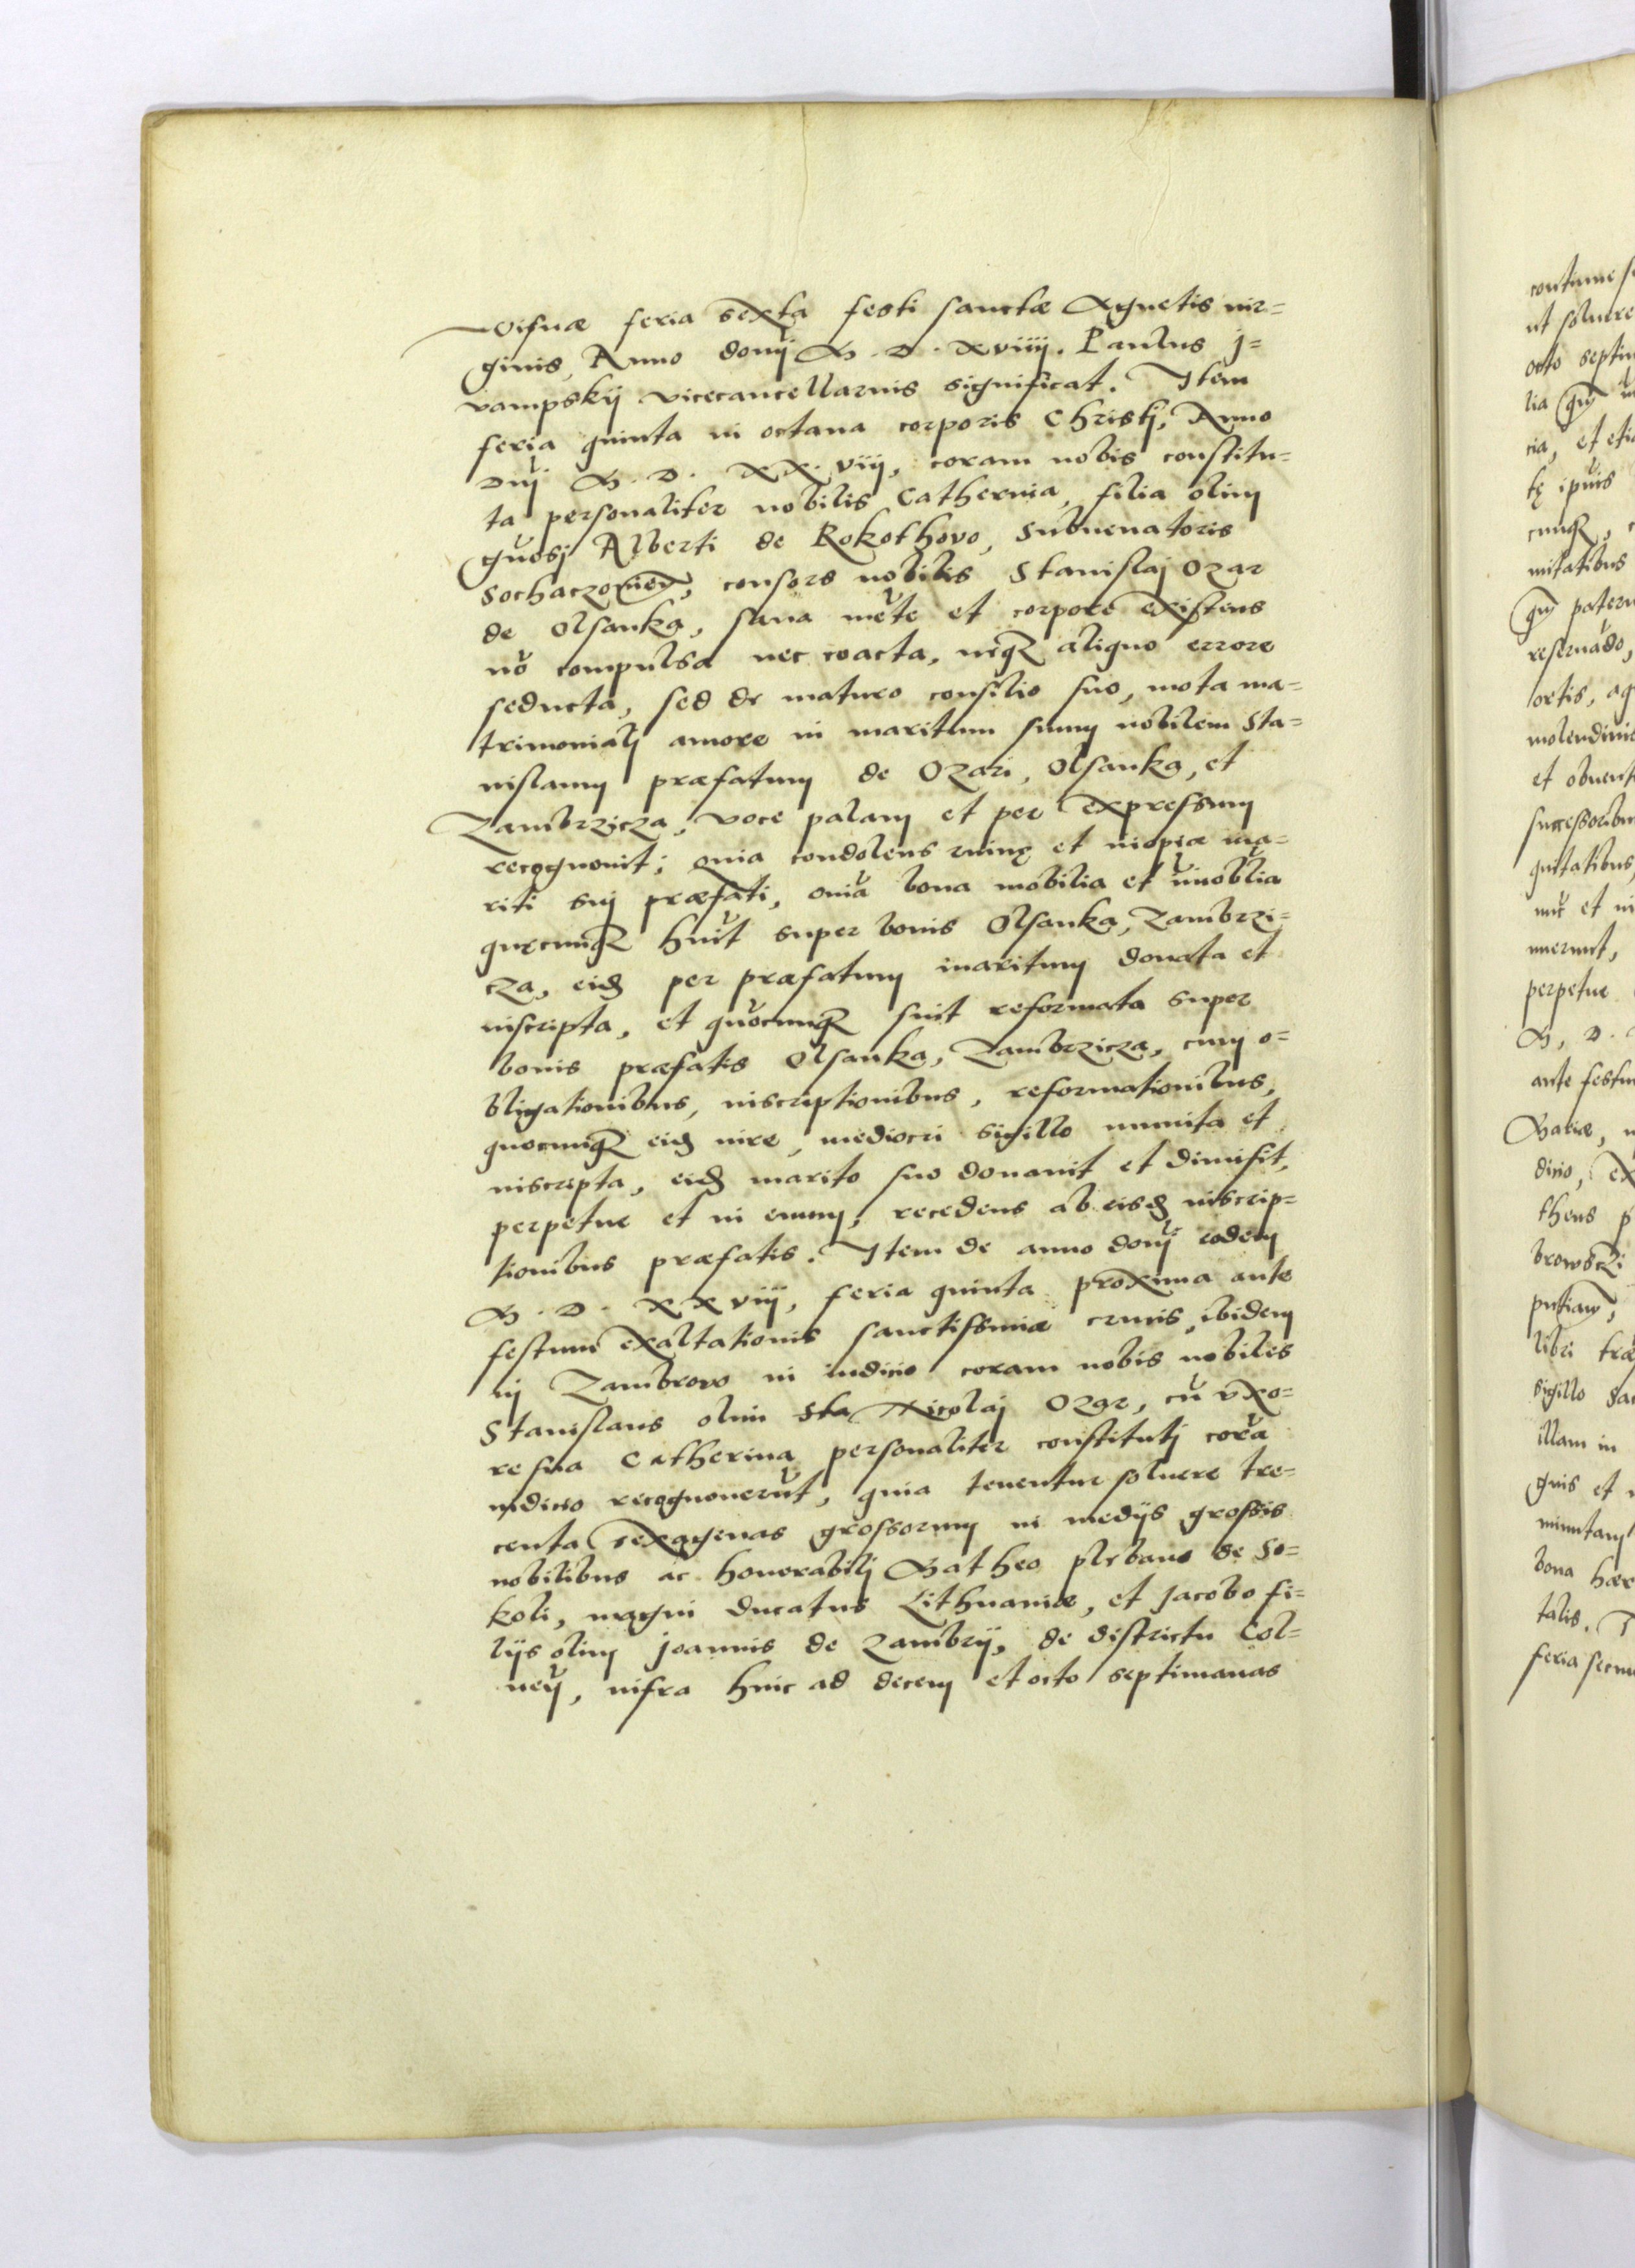 Visnæ feria sexta festi sanctæ Agnetis vir=
ginis, Anno domĩj M. D. xviiij. Paulus J=
vampskij vicecancellarius significat. Item
feria quinta in octaua corporis Christj, Anno
Dnĩj M. D. XX. viij, coram nobis constitu=
ta personaliter nobilis Catherina, filia olim
gñosj Alberti de Rokothovo, Subuenatoris
Sochaczovien̄, consors nobilis Stanislaj Ozar
de Olsanka, sana mẽte et corpore existens
nõ compulsa nec coacta, neqꝫ aliquo errore
seducta, sed de maturo consilio suo, mota ma=
trimonialj amore in maritum suum nobilem Sta=
nislaum præfatum de Ozari, Olsanka, et
Zambrzicza, voce palam et per expressum
recognouit; quia condolens ruinę et inopiæ ma=
riti suj præfati, oniã bona mobilia et ĩmobĩlia
quęcunqꝫ hũit super bonis Olsanka, Zambrzi=
cza, eidꝫ per præfatum maritum donata et
inscripta, et quõcunqꝫ sũit reformata super
bonis præfatis Olsanka, Zambrzicza, cum o=
bligationibus, inscriptionibus, reformationibus,
quocunqꝫ eidꝫ iure, mediocri sigillo munita et
inscripta, eidꝫ marito suo donauit et dimisit,
perpetue et in euum, recedens ab eisdꝫ inscrip=
tionibus præfatis. Item de anno domĩj eodem
M. D. XX viij, feria quinta proxima ante
festum exaltationis sanctissimæ crucis, ibidem
in Zambrovo in iudicio coram nobis nobiles
Stanislaus olim Sta Nicolaj Ozar, cũ vxo=
re sua Catherina personaliter constitutj corã
iudicio recognouerũt, quia tenentur soluere tre=
centa sexagenas grossorum in medijs grossis
nobilibus ac honorabilj Matheo plebano de So=
koli, magni ducatus Lithuaniæ, et Jacobo fi=
lijs olim Joannis de Zambrij, de districtu Col=
neñ, infra hinc ad decem et octo septimanas